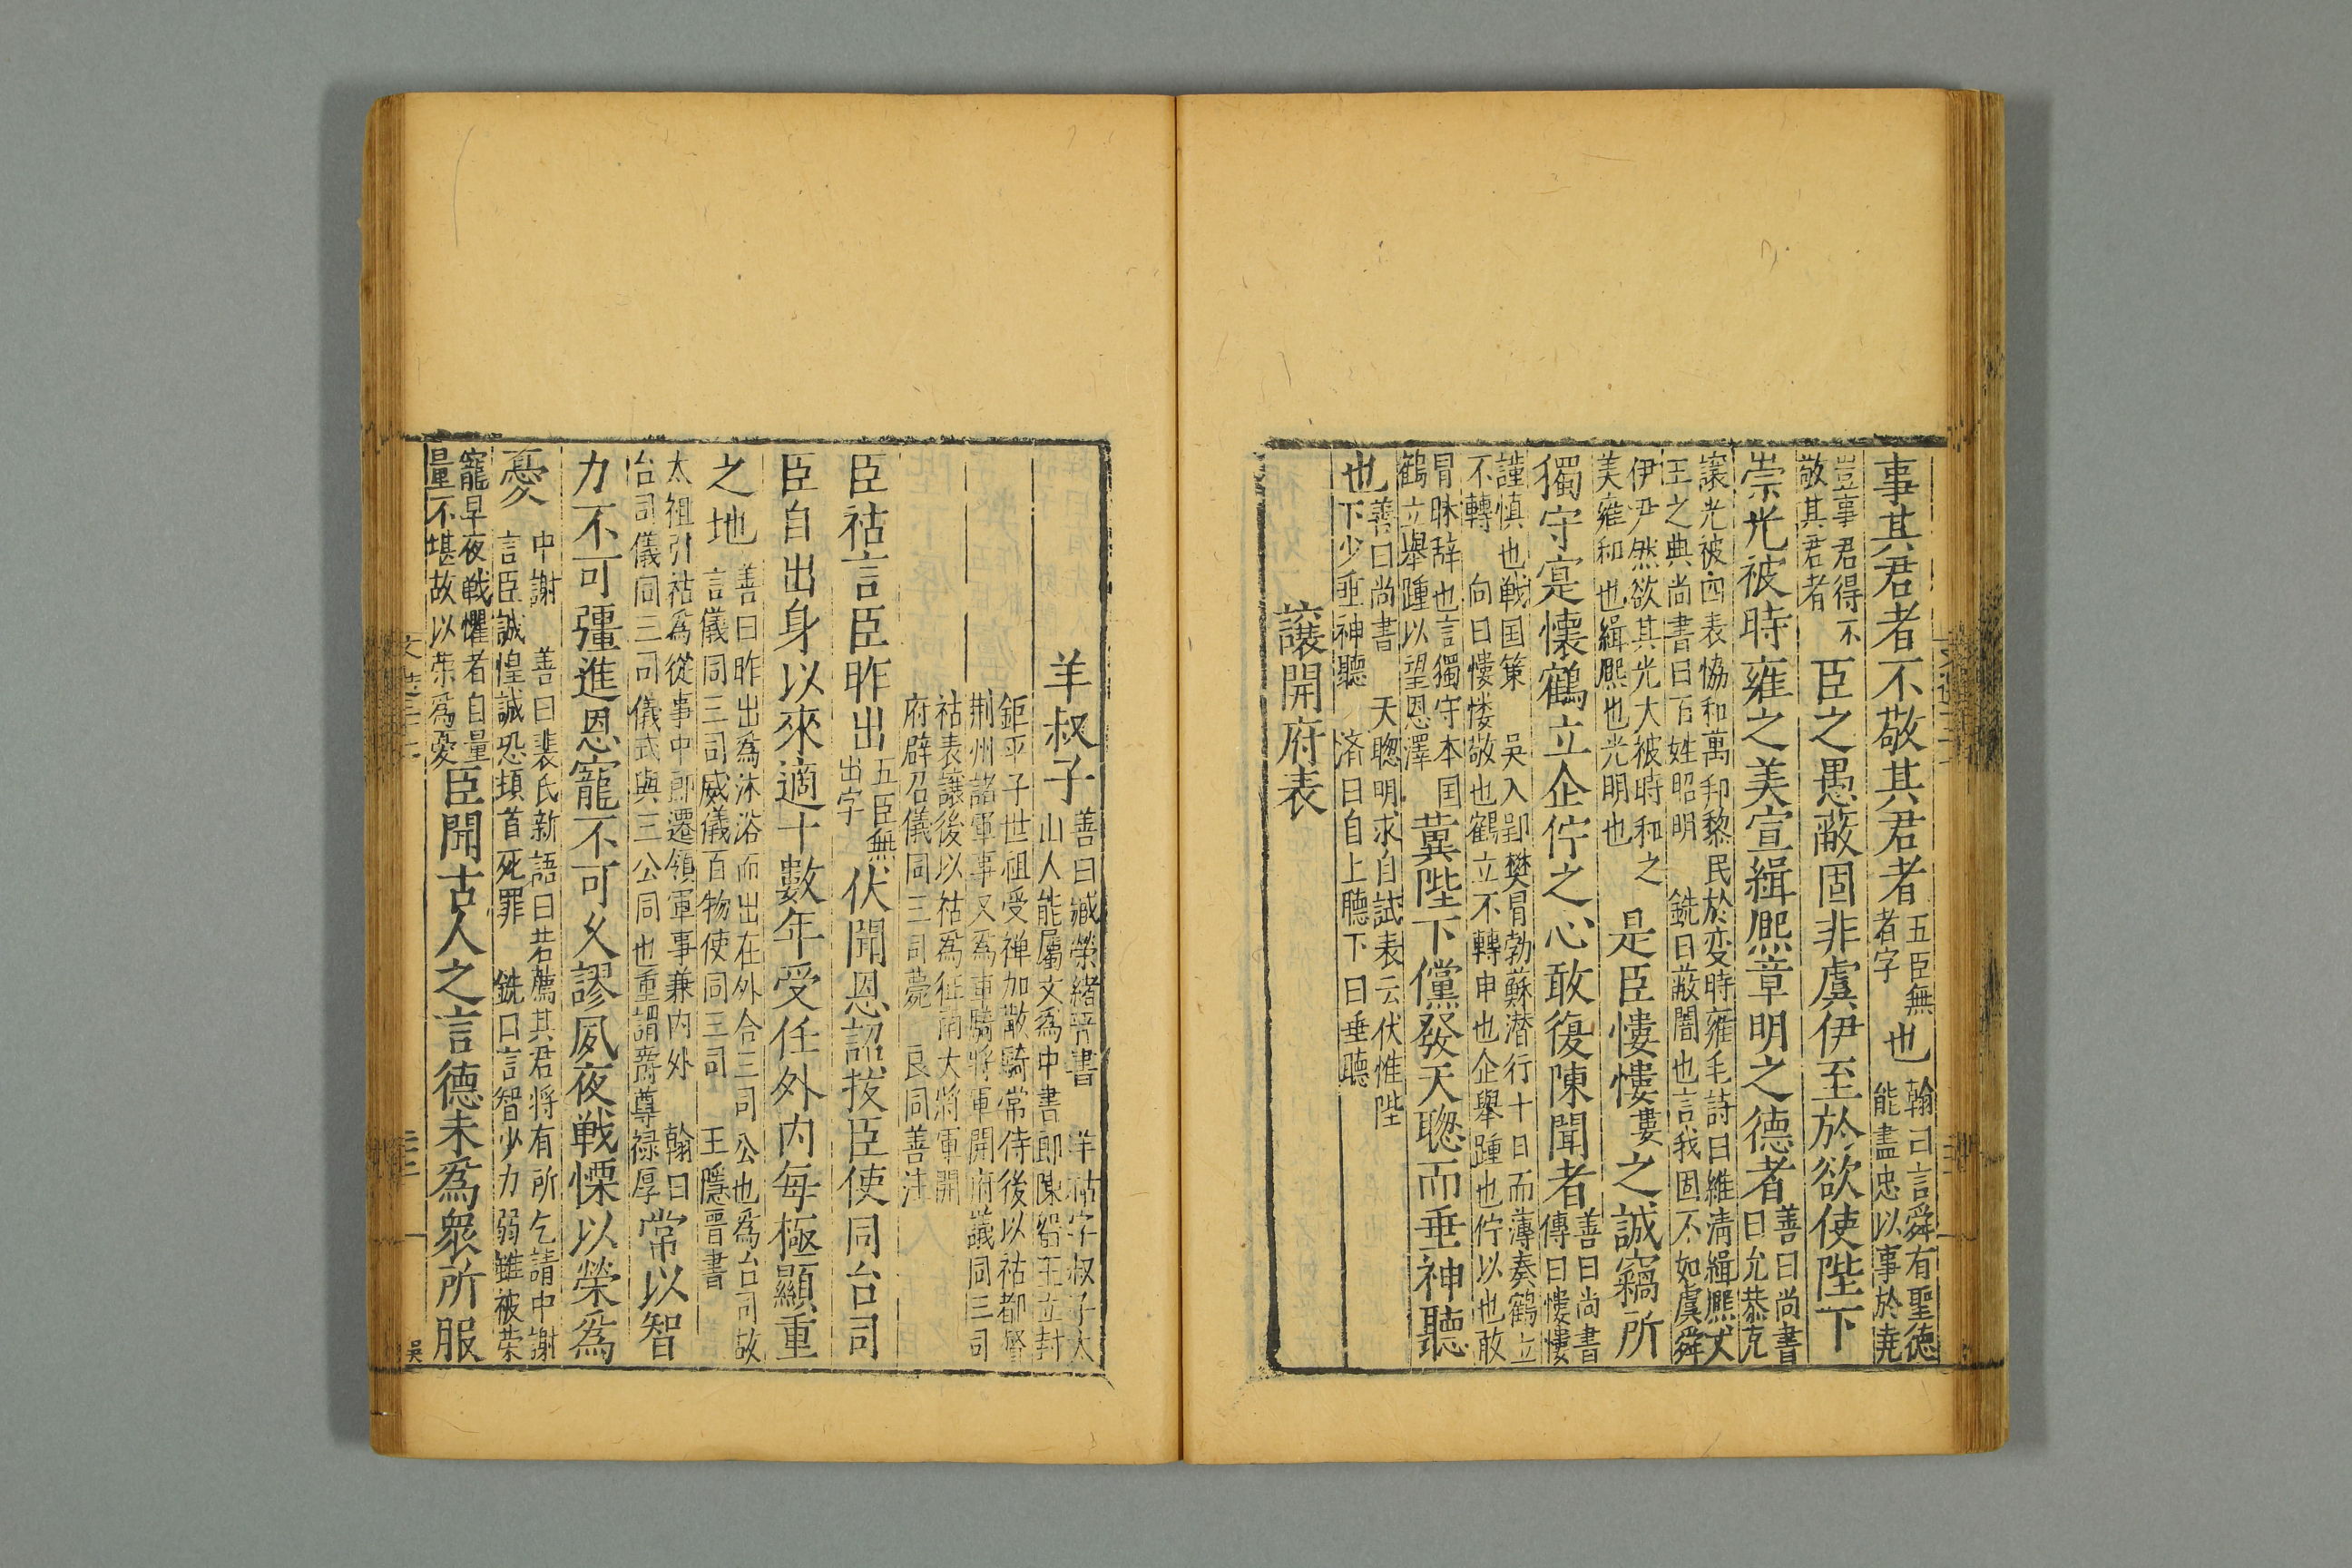 事其君者不敬其君者五臣無者字也翰曰言舜有聖德能盡忠以事於堯
豈事君得不敬其君者臣之愚蔽固非虞伊至於欲使陛下
崇光被時雍之美宣緝熈章明之德者善曰尚書曰允恭克
讓光被四表恊和萬邦黎民於変時雍毛詩曰維清緝熈文王之典尚書曰百姓昭明銑曰蔽闇也言我固不如虞舜
伊尹然欲其光大被時和之美雍和也緝熈也光明也是臣慺慺婁之誠竊所
獨守寔懷鶴立企佇之心敢復陳聞者善曰尚書傳曰慺慺
謹慎也戦国策吳入郢樊冐勃蘇潜行十日而薄奏鶴立不轉向曰慺慺敬也鶴立不轉申也企舉踵也佇以也敢
冐昧辞也言獨守本国鶴立舉踵以望恩澤冀陛下儻發天聦而垂神聽
也善曰尚書天聦明求自試表云伏惟陛下少垂神聽済曰自上聽下曰垂聽
讓開府表
羊叔子善曰臧榮緒晉書羊祜字叔子太山人能屬文為中書郎陳留王立封
鉅平子世祖受禅加散騎常侍後以祜都督荆州諸軍事又為車騎將軍開府議同三司
祜表讓後以祜為征南大將軍開府辟召儀同三司薨良同善注
臣祜言臣昨出五臣無出字伏聞恩詔拔臣使同台司
臣自出身以來適十數年受任外內毎極顯重
之地善曰昨出為沐浴而出在外合三司公也為台司故言儀同三司威儀百物使同三司王隱晉書
太祖引祜為從事中郎遷領軍事兼内外台司儀同三司儀式與三公同也重謂齊尊禄厚翰曰常以智
力不可彊進恩寵不可乆謬夙夜戰慄以榮為
憂中謝善曰裴氏新語曰若薦其君将有所乞請中謝言臣誠惶誠恐頓首死罪銑曰言智少力弱雖被荣
寵早夜戦懼者自量量不堪故以荣為憂臣聞古人之言德未為衆所服
吳